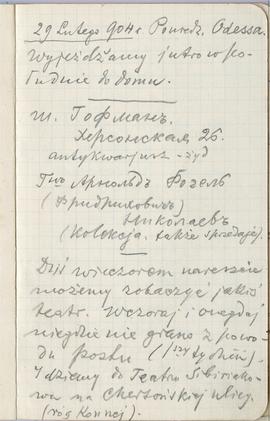 29 Lutego 904 r. Poniedz. Odessa.
Wyjeżdżamy jutro w po-
łudnie do domu.
Ш. Гофманъ.
Херсонская 26.
antykwarjusz - żyd
Арнольдъ Фогель
(Фридриховичъ)
Николаевъ
(Kolekcja. także sprzedaje).
Dziś wieczorem nareszcie
możemy zobaczyć jakiś
teatr. Wczoraj i onegdaj
niegdzie nie grano z powo-
du postu (1szy tydzień).
Idziemy do Teatru Sibiriako-
wa na Chersońskiej ulicy.
(róg Konnej).